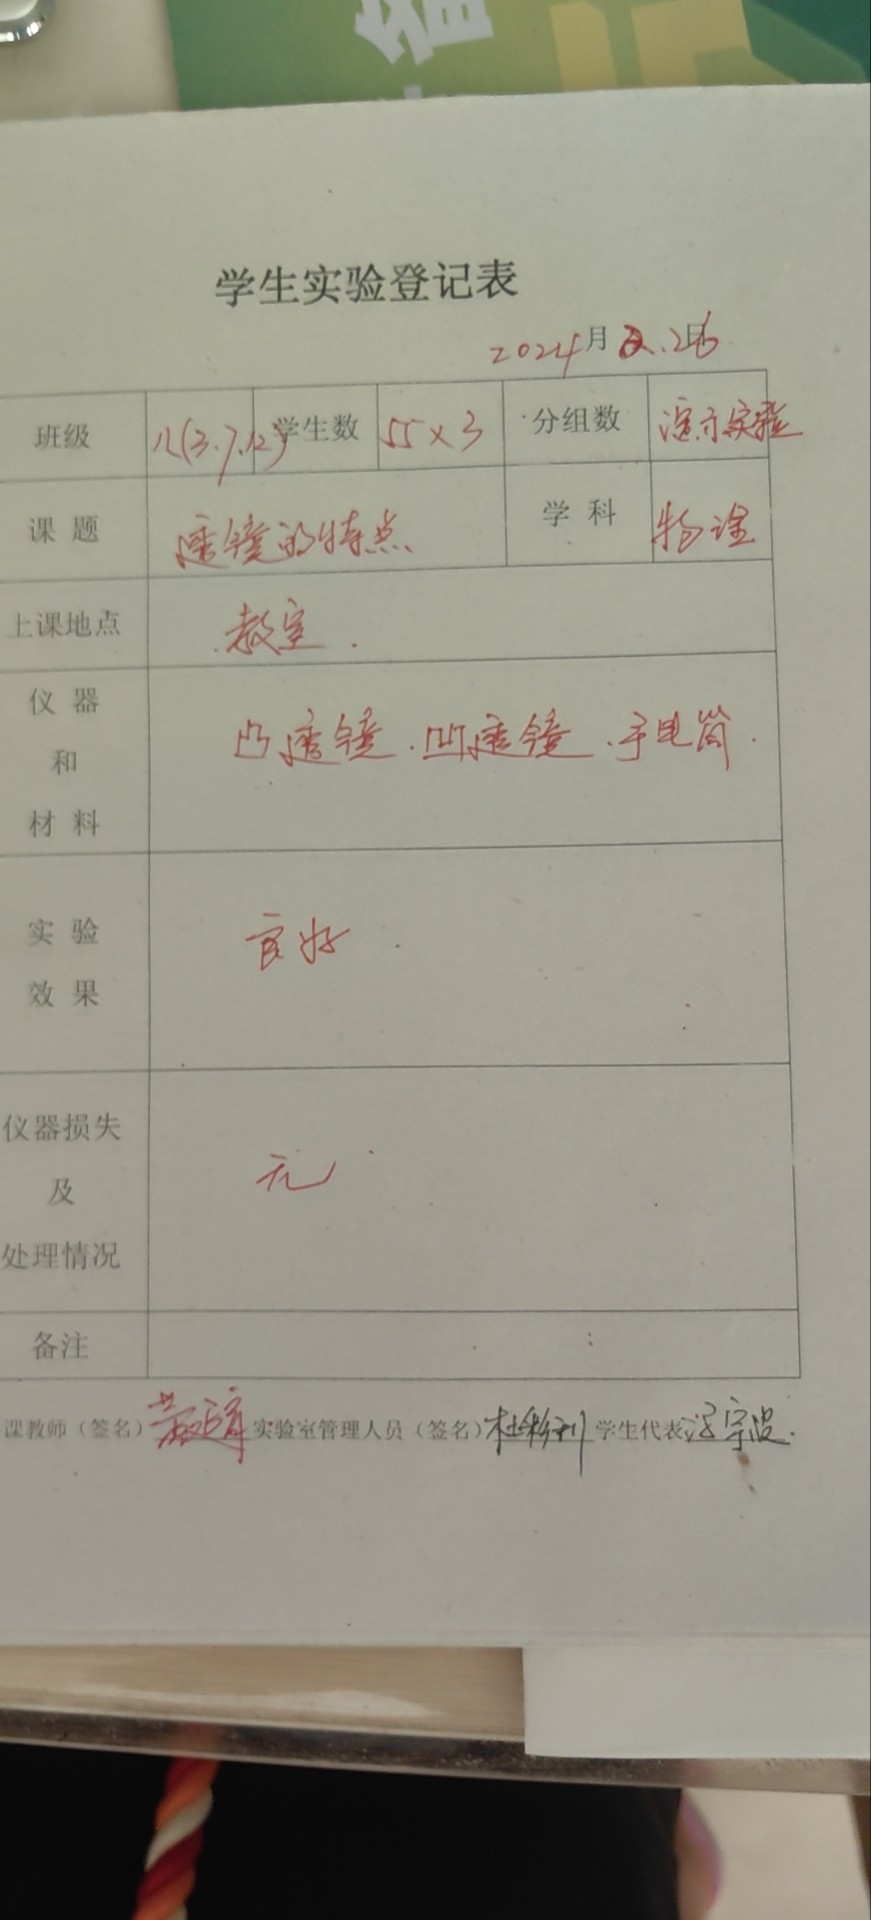 省
学生实验登记表
2024月2.26日
班级 八(3.7.12) 学生数 55×3 分组数 演示实验
课题 透镜的特点 学科 物理
上课地点 教室.
仪器
和
材料
凸透镜.凹透镜.手电筒.
实验
效果
良好.
仪器损失
及
处理情况
无.
备注
课教师（签名） 实验室管理人员（签名） 学生代表